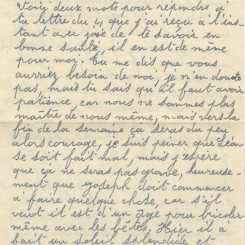 Voici deux mots pour répondre à
ta lettre du 4 que j'ai reçu à l'ins-
tant avec joie de te savoir en
bonne santé, il en est de même
pour moi. Tu me dis que vous
auriez besoin de moi, je n'en doute
pas, mais tu sais qu'il faut avoir
patience, car nous ne sommes plus
maître de nous même, mais vers la
fin de la semaine ça seras du peu
alors courage, je suis peiner que Léon
se soit fait mal, mais j'espère
que ça ne seras pas grave, heureuse-
ment que Joseph doit commencer
à faire quelque chose, car s'il
veut il est d'un âge pour bricoler
même avec les petits. Hier il a
fait un soleil splendide et